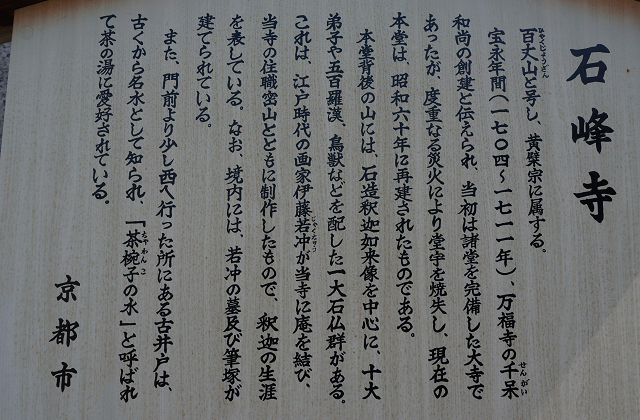 石峰寺
百丈山と号し、黄檗宗に属する。
宝永年間（一七〇四〜一七一一年）、万福寺の千呆
和尚の創建と伝えられ、当初は諸堂を完備した大寺で
あったが、度重なる災火により堂宇を焼失し、現在の
本堂は、昭和六十年に再建されたものである。
本堂背後の山には、石造釈迦如来像を中心に、十大
弟子や五百羅漢、鳥獣などを配した一大石仏群がある。
これは、江戸時代の画家伊藤若冲が当寺に庵を結び、
当寺の住職密山とともに制作したもので、釈迦の生涯
を表している。なお、境内には、若冲の墓及び筆塚が
建てられている。
また、門前より少し西へ行った所にある古井戸は、
古くから名水として知られ、「茶椀子の水」と呼ばれ
て茶の湯に愛好されている。
京都市